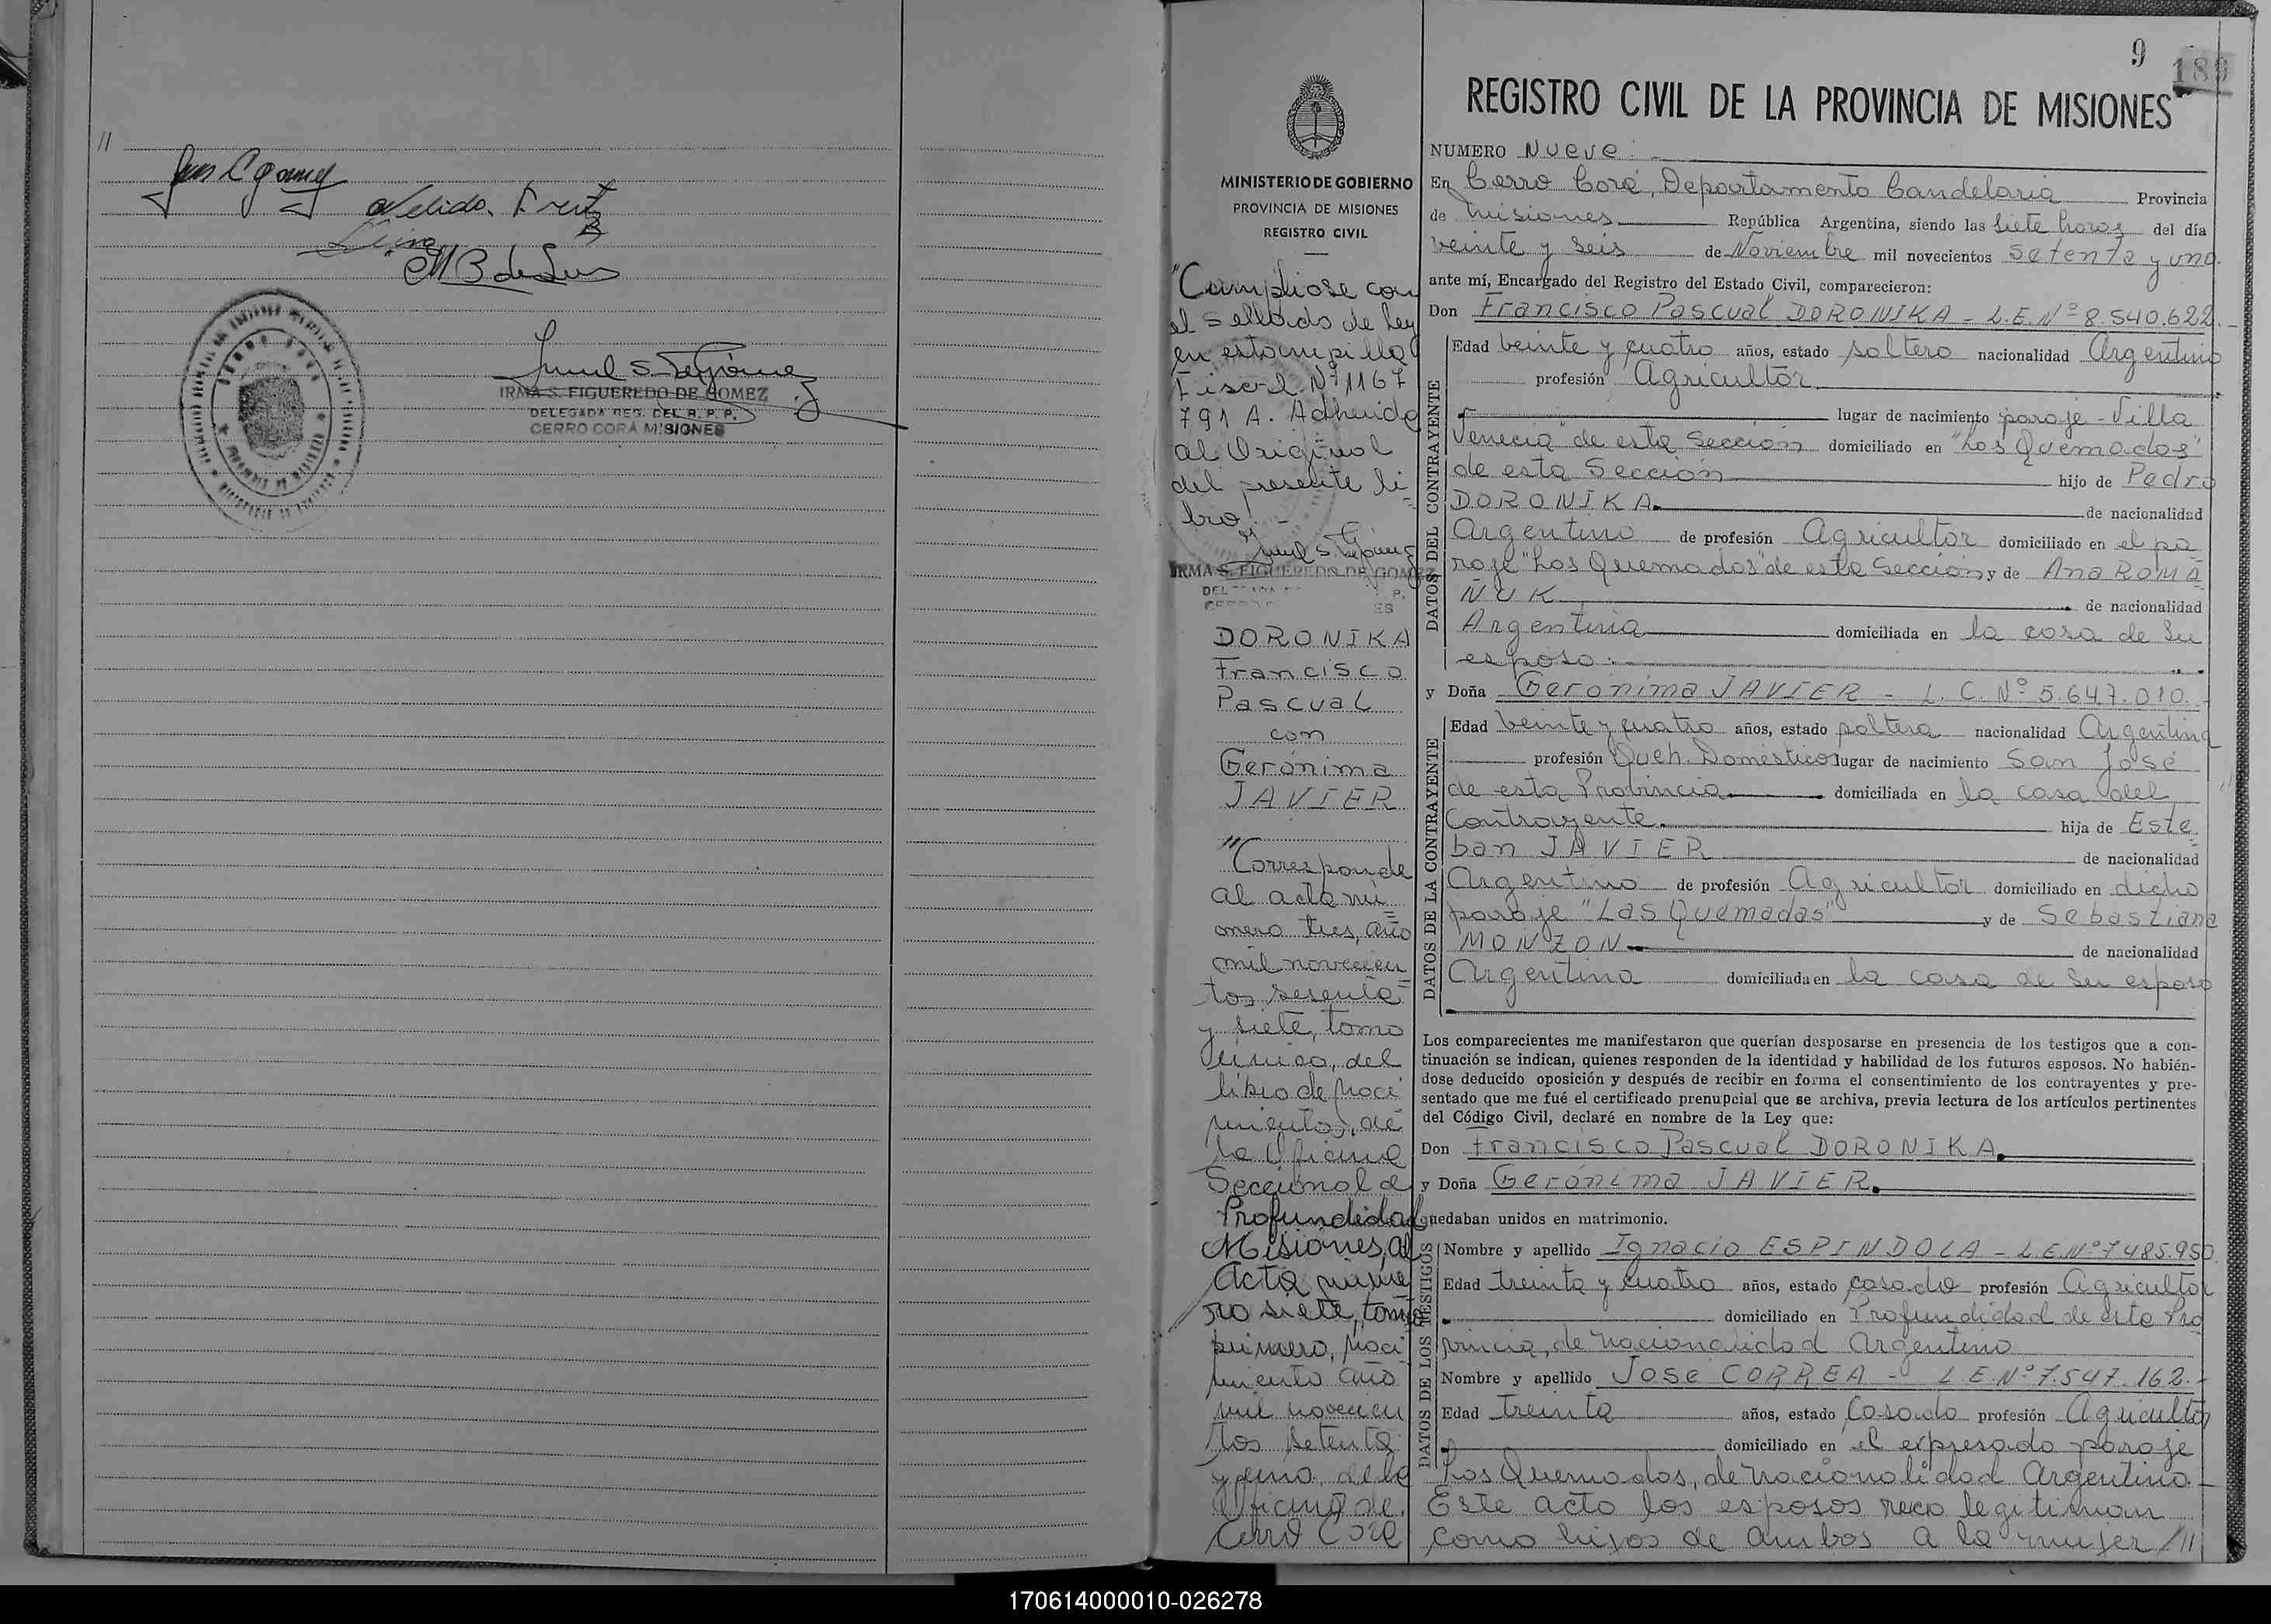 //
Nelida
M B de
IRMA S. FIGUEREDO DE GOMEZ
DELEGADA REG. DEL R. P. P.
CERRO CORÁ MISIONES
9
189
REGISTRO CIVIL DE LA PROVINCIA DE MISIONES
MINISTERIO DE GOBIERNO
PROVINCIA DE MISIONES
REGISTRO CIVIL
"Cumpliose con
el sellado de ley
en estampilla
Fiscal Nº 1167
791 A. Adherida
al Original
del presente li
bro."-
IRMA S. FIGUEREDO DE GOMEZ
DORONIKA
Francisco
Pascual
con
Gerónima
JAVIER
"Corresponde
al acta nú
mero tres, año
mil novecien
tos sesenta
y siete, tomo
único, del
libro de naci
mientos, de
la Oficina
Seccional de
Profundidad
Misiones, al
Acta núme
ro siete, tomo
primero, naci
miento año
mil novecien
tos setenta
y uno, de la
Oficina de
Cerro Corá
NUMERO Nueve.
En Cerro Corá, Departamento Candelaria Provincia
de Misiones República Argentina, siendo las siete horas del día
veinte y seis de Noviembre mil novecientos setenta y uno
ante mí, Encargado del Registro del Estado Civil, comparecieron:
Don Francisco Pascual DORONIKA - L.E.Nº 8.540.622.-
DATOS DEL CONTRAYENTE
Edad veinte y cuatro años, estado soltero nacionalidad Argentino
profesión Agricultor
lugar de nacimiento paraje - Villa
Venecia" de esta Sección domiciliado en "Los Quemados"
de esta Sección hijo de Pedro
DORONIKA. de nacionalidad
Argentino de profesión Agricultor domiciliado en el pa
raje "Los Quemados" de esta Sección y de Ana ROMA
ÑUK de nacionalidad
Argentina domiciliada en la casa de su
esposo.
y Doña Gerónima JAVIER - L. C. Nº 5.647.010.-
DATOS DE LA CONTRAYENTE
Edad veinte y cuatro años, estado soltera nacionalidad Argentina
profesión Queh. Domésticos lugar de nacimiento San José
de esta Provincia domiciliada en la casa del
Contrayente. hija de Este
ban JAVIER de nacionalidad
Argentino de profesión Agricultor domiciliado en dicho
paraje "Los Quemados" y de Sebastiana
MONZON de nacionalidad
Argentina domiciliada en la casa de su esposo
Los comparecientes me manifestaron que querían desposarse en presencia de los testigos que a con-
tinuación se indican, quienes responden de la identidad y habilidad de los futuros esposos. No habién-
dose deducido oposición y después de recibir en forma el consentimiento de los contrayentes y pre-
sentado que me fué el certificado prenupcial que se archiva, previa lectura de los artículos pertinentes
del Código Civil, declaré en nombre de la Ley que:
Don Francisco Pascual DORONIKA.
y Doña Gerónima JAVIER.
quedaban unidos en matrimonio.
DATOS DE LOS TESTIGOS
Nombre y apellido Ignacio ESPINDOLA - L E Nº 7.485.950
Edad treinta y cuatro años, estado casado profesión Agricultor
domiciliado en Profundidad de esta Pro
vincia, de nacionalidad Argentino
Nombre y apellido José CORREA - L E. Nº 7.547.162.-
Edad treinta años, estado Casado profesión Agricultor
domiciliado en el expresado paraje
Los Quemados, de nacionalidad Argentino.-
Este acto los esposos reco legitiman
como hijos de ambos a la mujer //
170614000010-026278